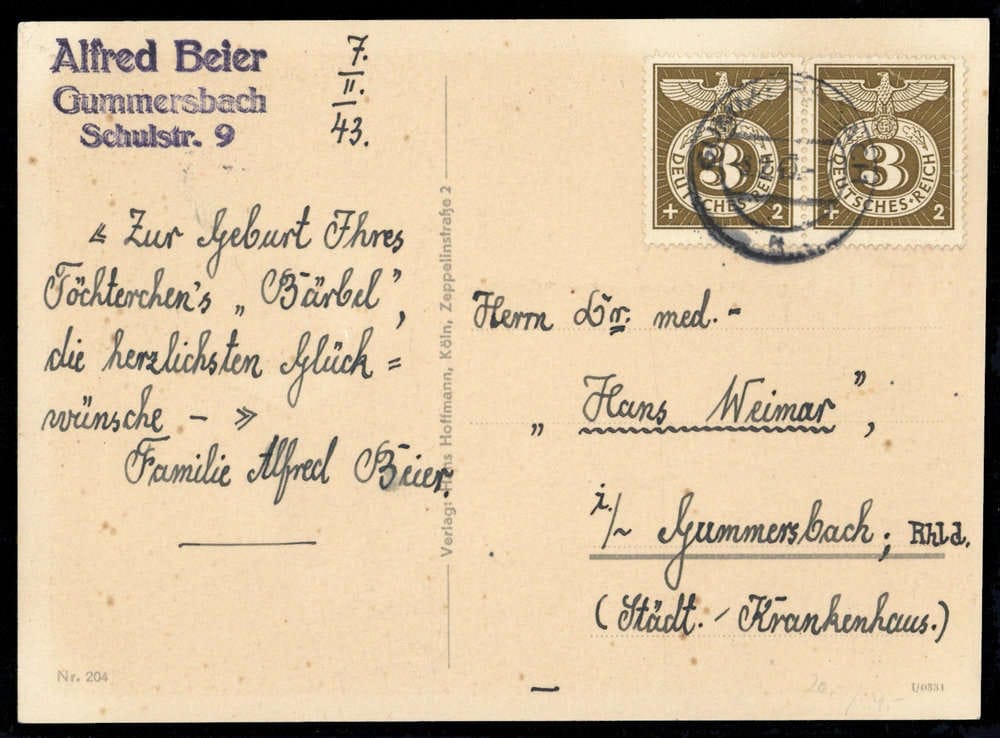 Alfred Beier
Gummersbach
Schulstr. 9
7.
II.
43.
« Zur Geburt Ihres
Töchterchen's „ Bärbel ”,
die herzlichsten Glück =
wünsche – »
Familie Alfred Beier.
Nr. 204
Verlag: Hans Hoffmann, Köln, Zeppelinstraße 2
3
DEUTSCHES REICH
+ 2
3
DEUTSCHES·REICH
+ 2
Herrn Dr. med. -
„ Hans Weimar ”,
i/~ Gummersbach; Rhld.
( Städt. - Krankenhaus.)
20,-
U/0331